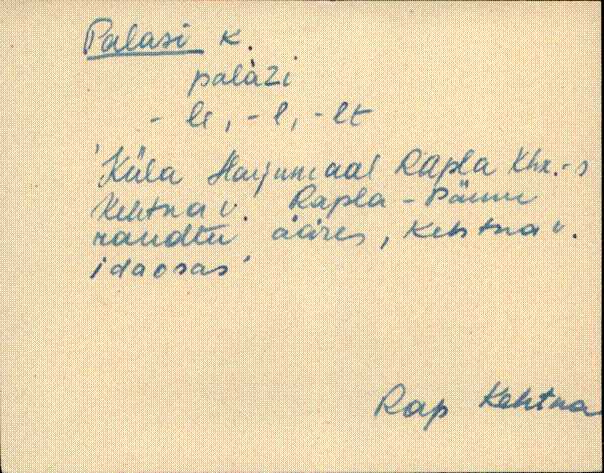 Palasi k.
palàzi
- le, - l, - lt
'Küla Harjumaal Rapla khk.-s
Kehtna v. Rapla - Pärnu
raudtee ääres, Kehtna v.
idaosas'
Rap Kehtna